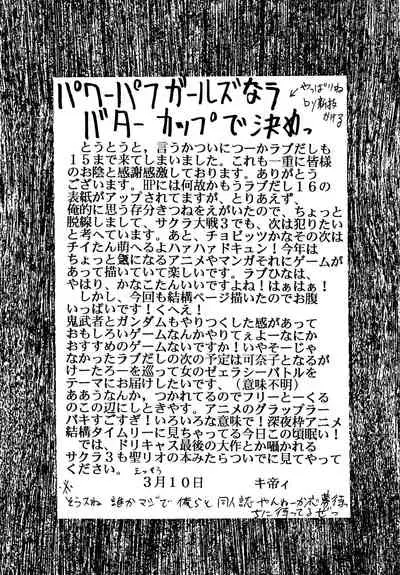 パワーパフガールズなら
バターカップで決めっ
やっぱりね
by
とうとうと，言うかついにつーかラブだしも
１５まで来てしまいました。これも一重に皆様
のお陰と感謝感激しております。ありがとう
ございます。HPには何故かもうラブだし１６の
表紙がアップされてますが、とりあえず、
俺的に思う存分きつねをえがいたので、ちょっと
脱線しまして、サクラ大戦３でも、次は犯りたい
と考えています。あと、チョビッツかなその次は
チイたん萌へるよハァハァドキュン！今年は
ちょっと気になるアニメやマンガそれにゲームが
あって描いていて楽しいです。ラブひなは、
やはり、かなこたんいいですよね！はぁはぁ！
しかし、今回も結構ページ描いたのでお腹
いっぱいです！くへえ！
鬼武者とガンダムもやりつくした感があって
おもしろいゲームなんかやりてぇよーなにか
おすすめのゲームないですか！いやそーじゃ
なかったラブだしの次の予定は可奈子となるが
けーたろーを巡って女のゼェラシーバトルを
テーマにお届けしたいです、（意味不明）
ああうなんか，つかれてるのでフリーとーくる
のこの辺にしときやす。アニメのグラップラー
バキすごすぎ！いろいろな意味で！深夜枠アニメ
結構タイムリーに見ちゃってる今日この頃眠い！
では、ドリキャス最後の大作とか囁かれる
サクラ３も聖リオの本みたらついでに見てやって
ください。
３月１０日 キ帝ィ
そうスね 誰かマジで俺らと同人誌やんねーか
待ってるぜっ